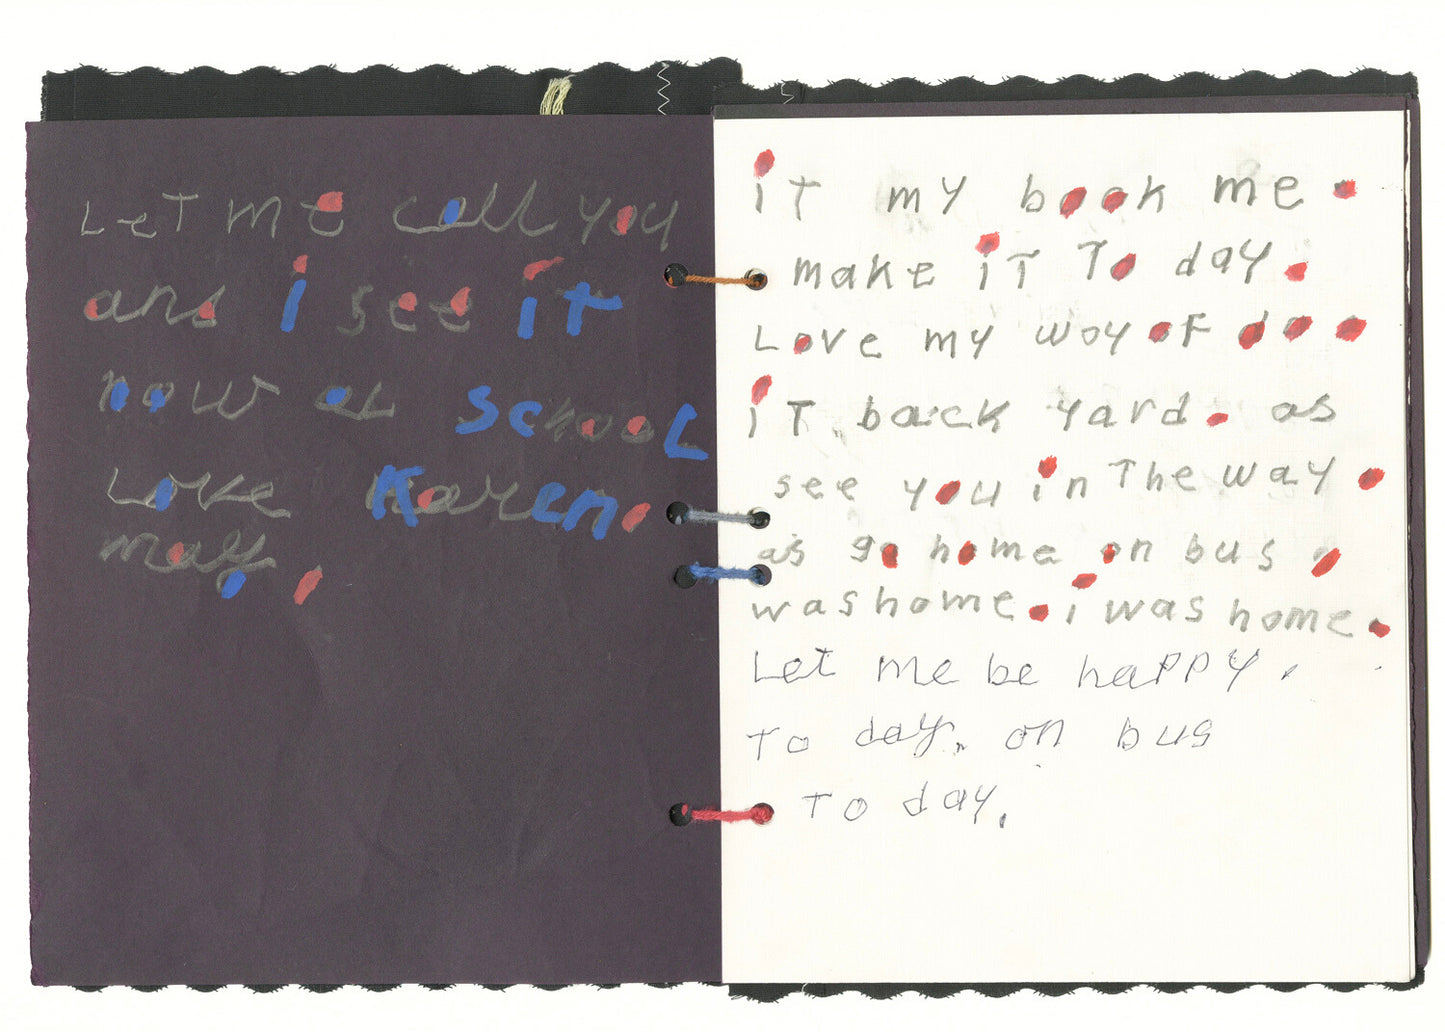 LeT me call you
and i see it
now at school
Love Karen.
may.
iT my book me.
make iT To day.
Love my woy of do.
iT back yard. as
see you in The way.
as go home on bus.
was home. i was home.
Let me be happy.
To day. on bus
To day.